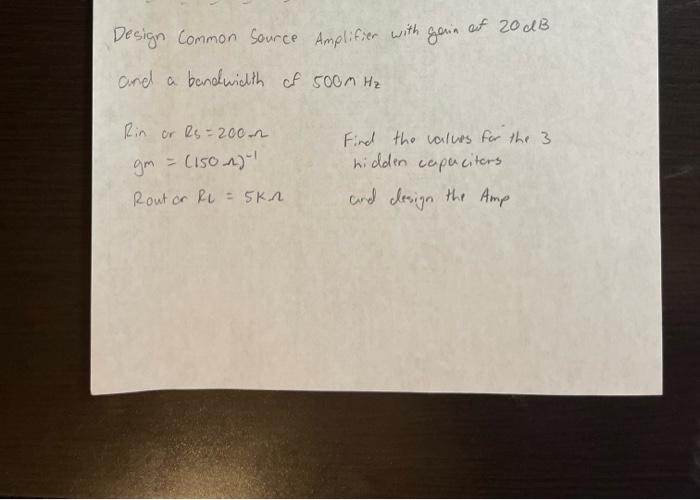 Design Common Source Amplifier with gain of 20dB
and a bandwidth of 500m Hz
Rin or Rs = 200Ω
gm = (150Ω)⁻¹
Rout or RL = 5KΩ
Find the values for the 3
hidden capacitors
and design the Amp